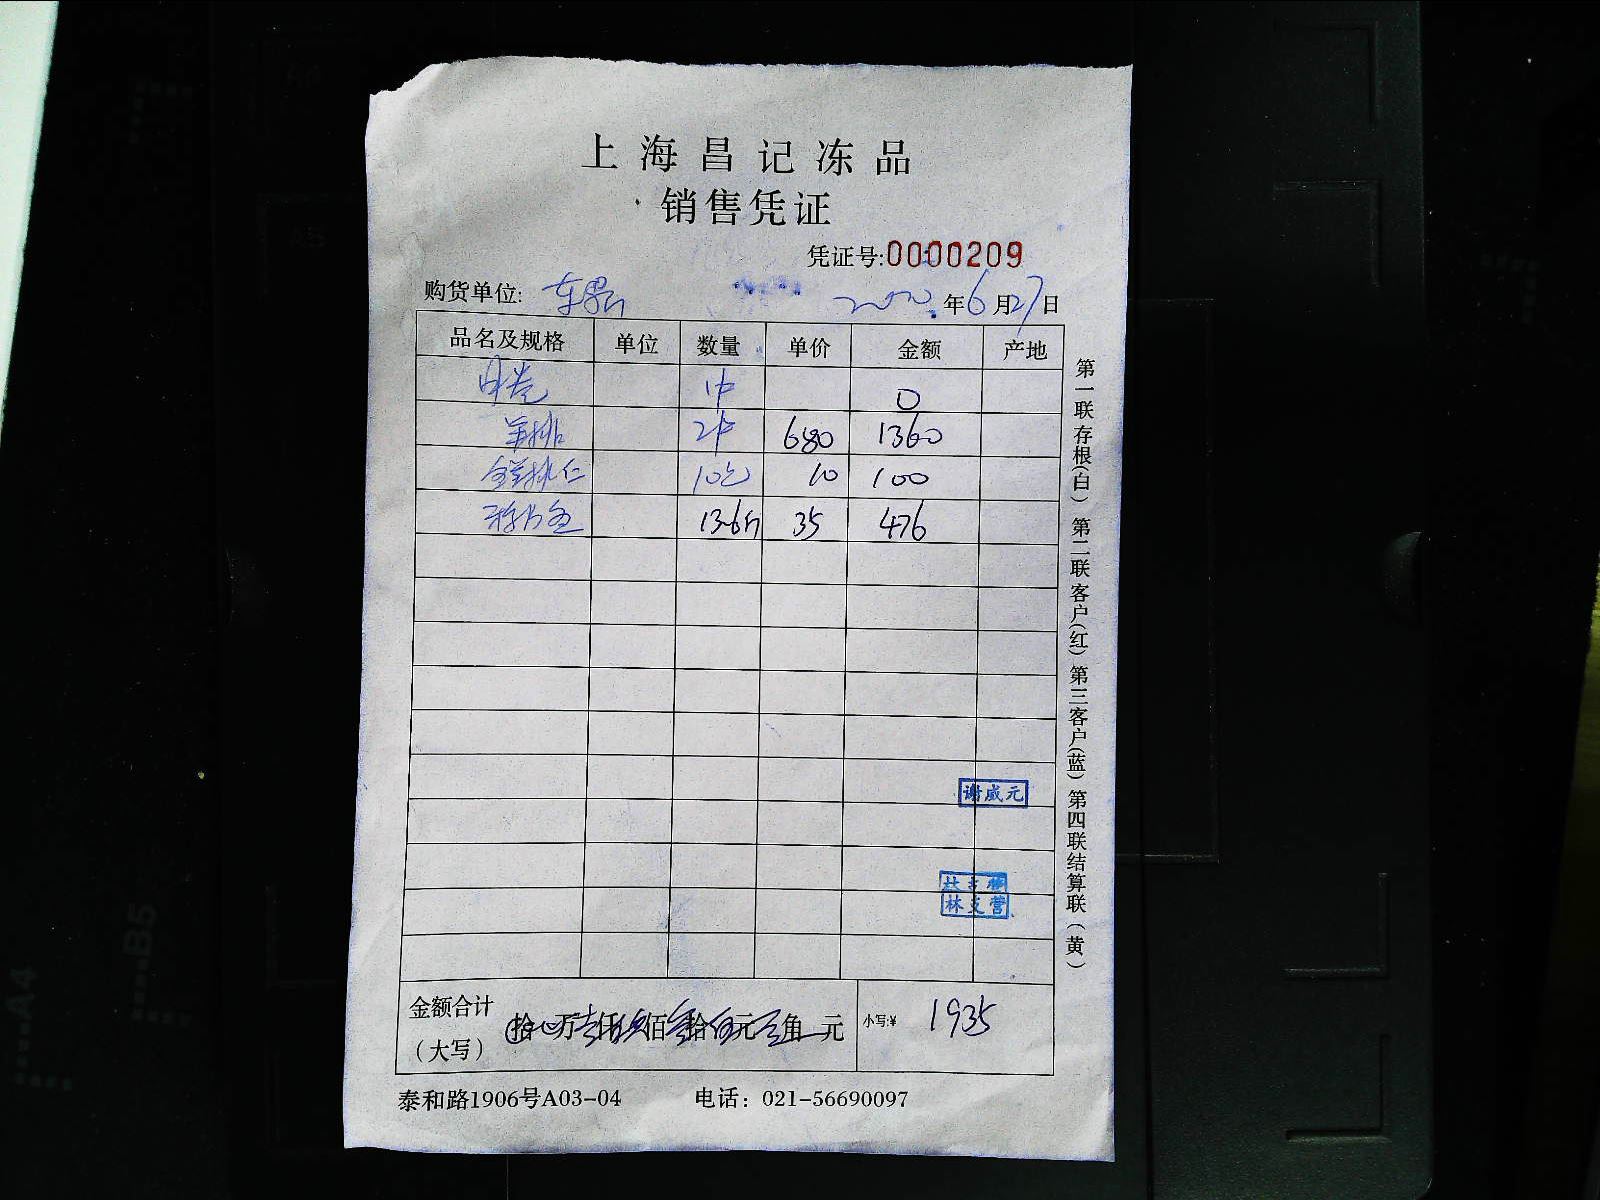 上海昌记冻品
销售凭证
凭证号:0000209
购货单位: 年6月27日
品名及规格 单位 数量 单价 金额 产地
0
羊排 2件 680 1360
10包 10 100
13.6斤 35 476
谢咸元
林支营
金额合计
(大写) 拾 万 仟 佰 拾 元 角 元 小写:¥ 1935
泰和路1906号A03-04 电话: 021-56690097
第一联存根(白) 第二联客户(红) 第三客户(蓝) 第四联结算联(黄)
A4
B5